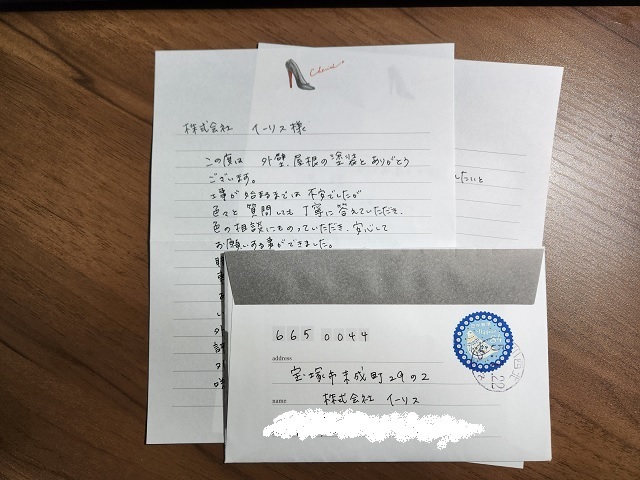 株式会社 イーリス様
この度は 外壁、屋根の塗装とありがとう
ございます。
工事が始まるまでは 不安でしたが
色々と質問しても丁寧に答えていただき、
色の相談にものっていただき、安心して
お願いする事ができました。
したいと
665 0044
address
宝塚市末成町29の2
name
株式会社 イーリス